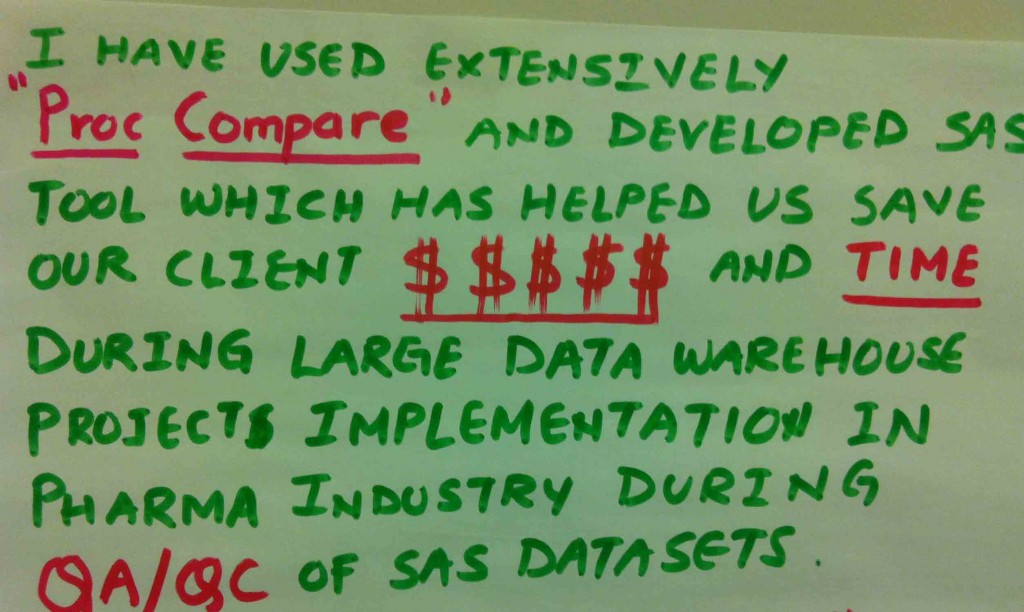 I HAVE USED EXTENSIVELY
"Proc Compare" AND DEVELOPED SAS
TOOL WHICH HAS HELPED US SAVE
OUR CLIENT $ $ $ $ $ AND TIME
DURING LARGE DATA WAREHOUSE
PROJECTS IMPLEMENTATION IN
PHARMA INDUSTRY DURING
QA/QC OF SAS DATASETS.